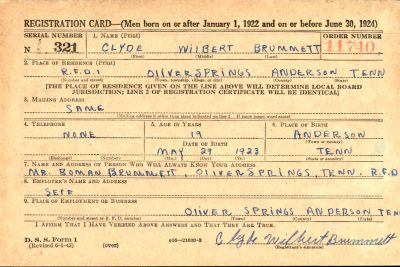 REGISTRATION CARD—(Men born on or after January 1, 1922 and on or before June 30, 1924)
SERIAL NUMBER 1. NAME (Print) ORDER NUMBER
N 321 CLYDE WILBERT BRUMMETT 11740
(First) (Middle) (Last)
2. PLACE OF RESIDENCE (Print)
R.F.D.1 OLIVER SPRINGS ANDERSON TENN
(Number and street) (Town, township, village, or city) (County) (State)
[THE PLACE OF RESIDENCE GIVEN ON THE LINE ABOVE WILL DETERMINE LOCAL BOARD
JURISDICTION; LINE 2 OF REGISTRATION CERTIFICATE WILL BE IDENTICAL]
3. MAILING ADDRESS
SAME
(Mailing address if other than place indicated on line 2. If same insert word same)
4. TELEPHONE 5. AGE IN YEARS 6. PLACE OF BIRTH
NONE 19 ANDERSON
DATE OF BIRTH (Town or county)
MAY 29 1923 TENN
(Mo.) (Day) (Yr.) (State or country)
7. NAME AND ADDRESS OF PERSON WHO WILL ALWAYS KNOW YOUR ADDRESS
MR. BOMAN BRUMMETT, OLIVER SPRINGS, TENN. R.F.D
8. EMPLOYER'S NAME AND ADDRESS
SELF
9. PLACE OF EMPLOYMENT OR BUSINESS
OLIVER SPRINGS ANDERSON TEN
(Number and street or R. F. D. number) (Town) (County) (State)
I AFFIRM THAT I HAVE VERIFIED ABOVE ANSWERS AND THAT THEY ARE TRUE.
D. S. S. Form 1
(Revised 6-9-42) (over) Clyde Wilbert Brummett
(Registrant's signature)